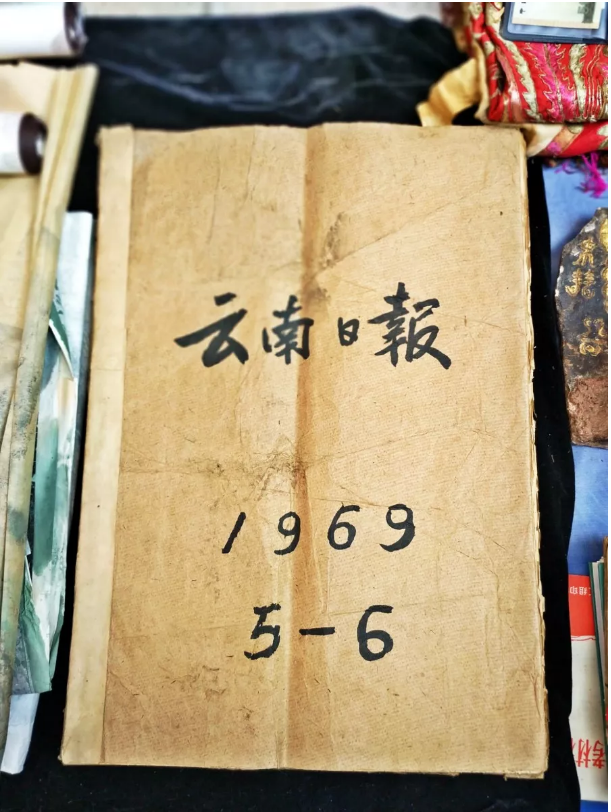 云南日報
1969
5-6